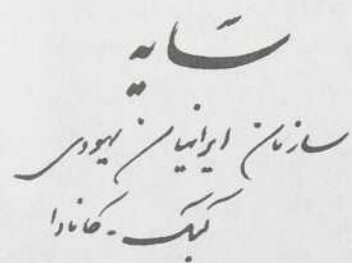 سایه
سازمان ایرانیان یهودی
کبک - کانادا